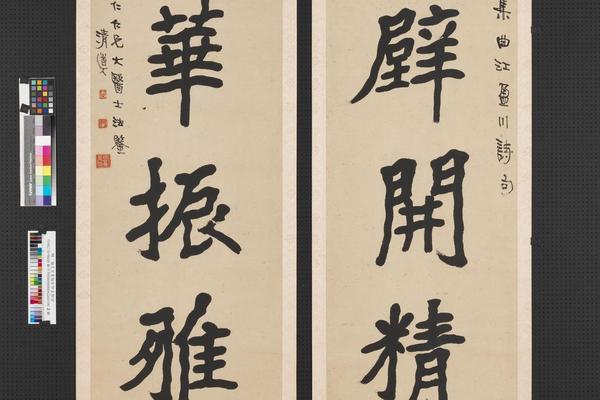 集曲江盈川詩句
辟開精
華振雅
仁仁兄大醫士法鑒
清道人